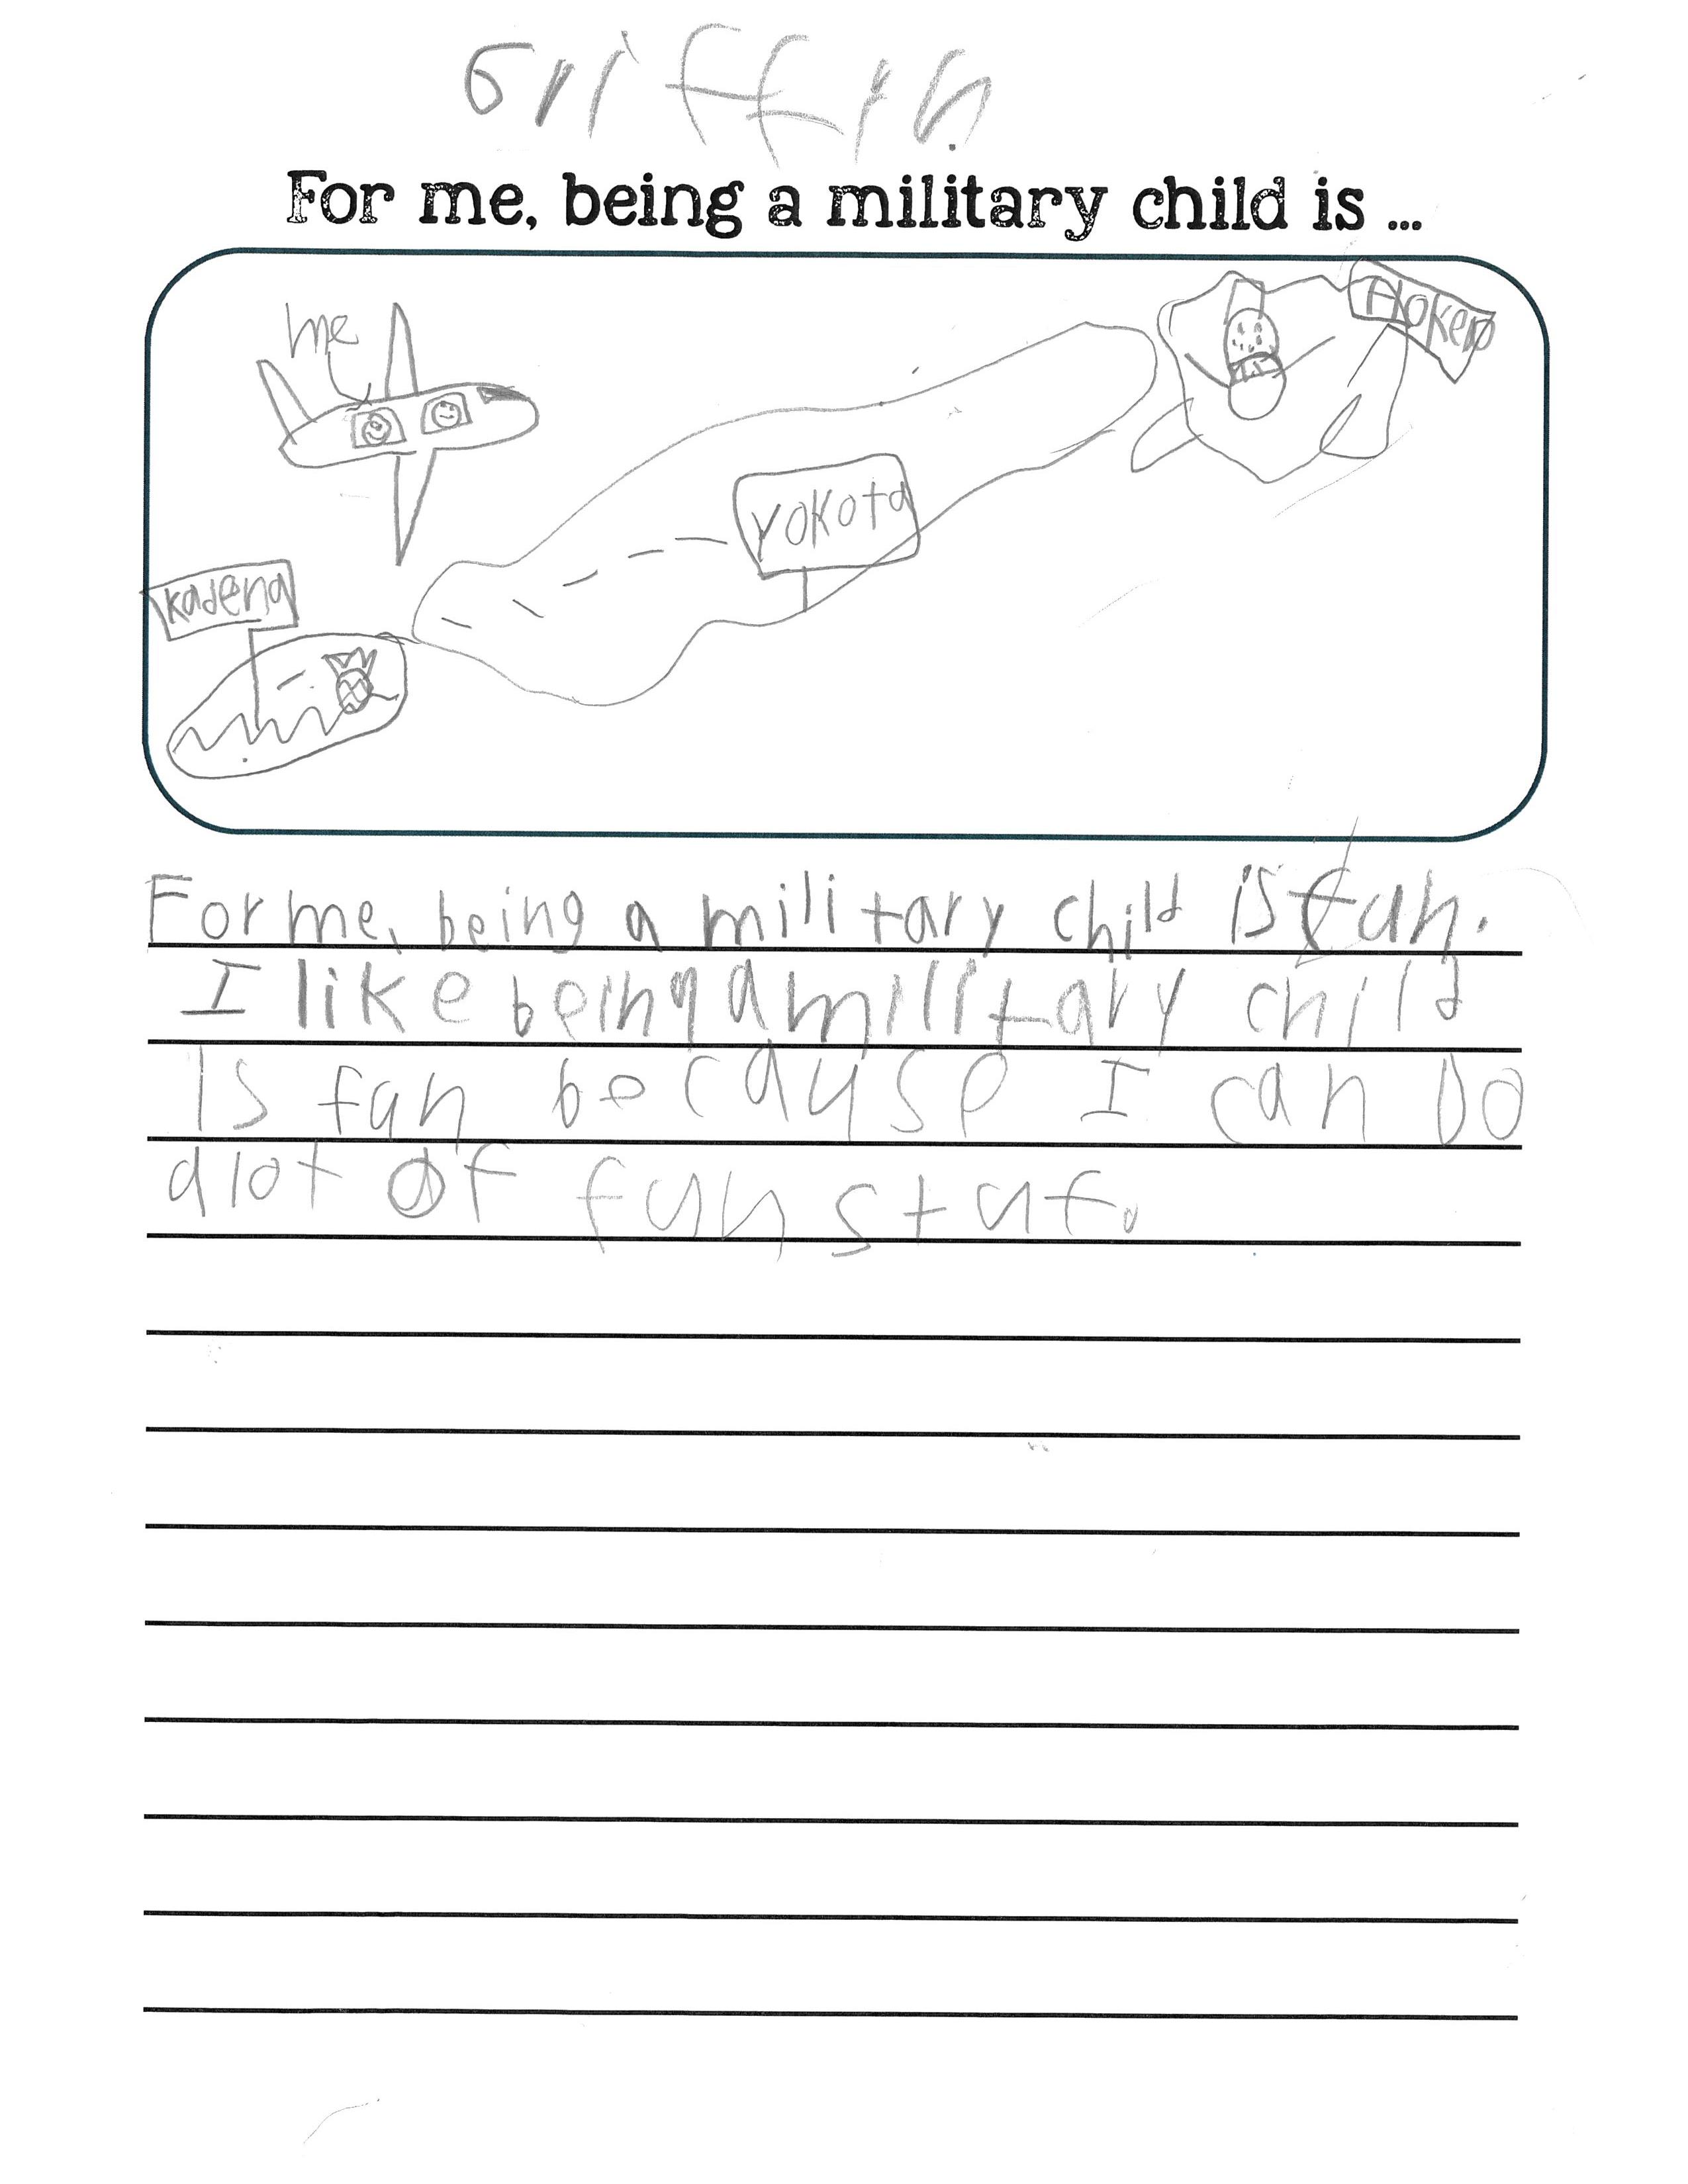 Griffin
For me, being a military child is ...
me
Yokota
Kadena
For me, being a military child is fun.
I like being a military child
Is fun because I can Do
alot of fun stuf.